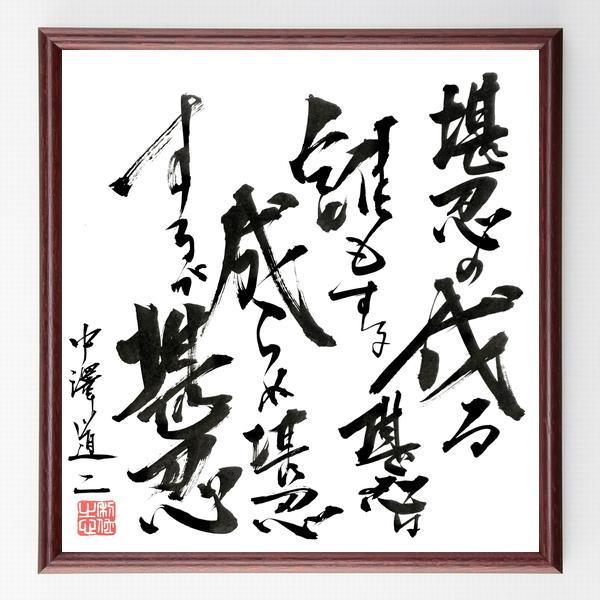 堪忍の成る
誰もする堪忍は
成らぬ堪忍
するが堪忍
中澤道二